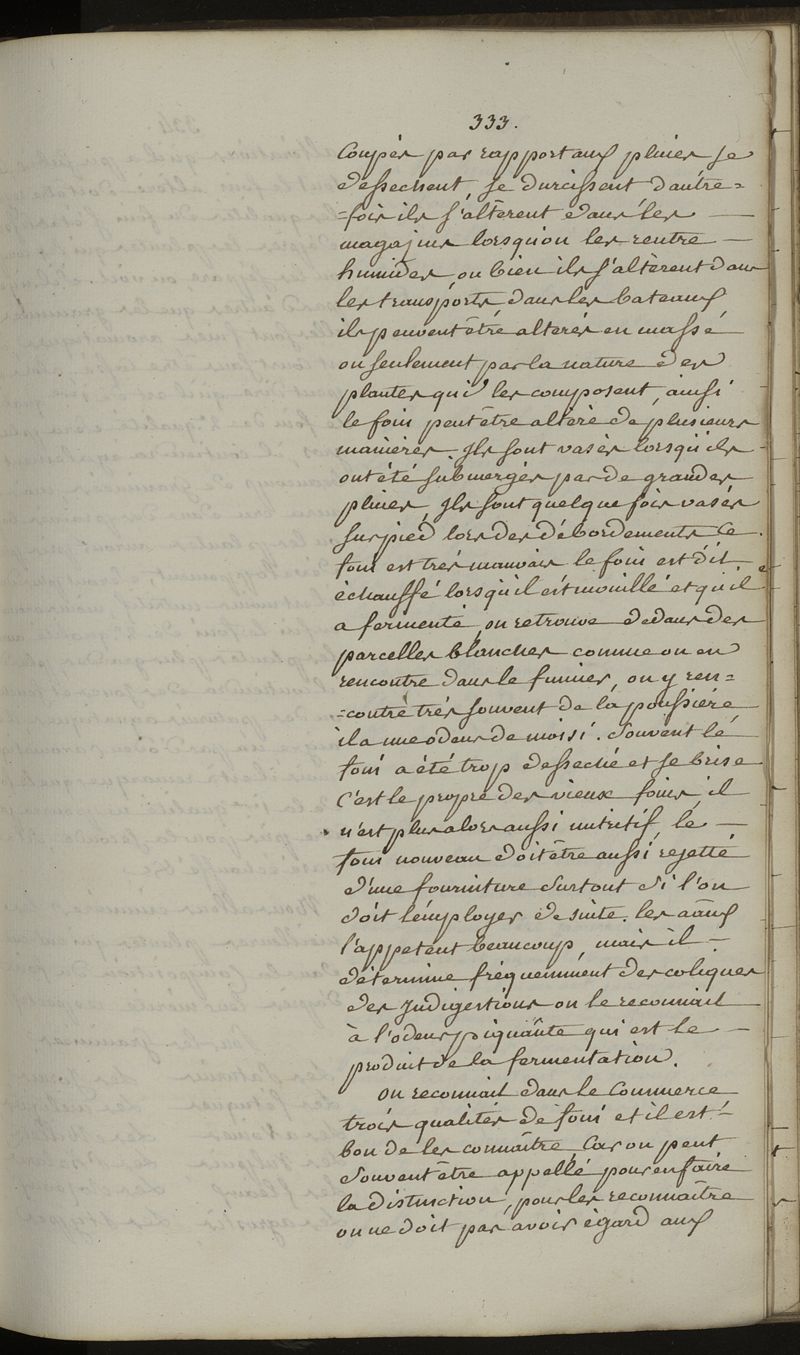 333.
Coupés par rapport aux pluies se
dessechent, se durcissent d'autre=
=fois ils s'altèrent dans les —
magasins lorsqu'on les rentre —
humides, ou bien ils s'altèrent dans
les transports dans les bateaux
ils peuvent être alterés en masse
ou seulement par la nature des
plantes qui les composent, ainsi
le foin peut être altéré de plusieurs
manieres. Ils sont vasés lorsqu'ils
ont été submergés par de grandes
pluies, Ils sont quelque fois vasés
sur pied lors des débordements ce
foin est très mauvais le foin est dit
échauffé lorsqu'il est mouillé et qu'il
a fermenté, on retrouve dedans des
parcelles blanches comme on en
rencontre dans le fumier, on y ren=
=contre très souvent de la poussière
il a une odeur de moisi. Souvent le
foin a été trop desseché et se brise
C'est le propre des vieux foins, il
n'est plus alors aussi nutritif, le —
foin nouveau doit être aussi rejetté
d'une fourniture surtout si l'on
doit l'employer de suite. les aãux
l'appetent beaucoup, mais il —
détermine fréquemment des coliques
des Indigestions on le reconnait
à l'odeur piquante qui est le —
produit de la fermentation.
On reconnait dans le Commerce
trois qualités de foin et il est —
bon de les connaître, Car on peut
souvent être appellé pour en faire
la distinction, pour les reconnaître
on ne doit pas avoir égard aux